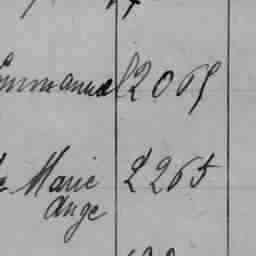 Emmanuel 2065
Marie 2265
Ange